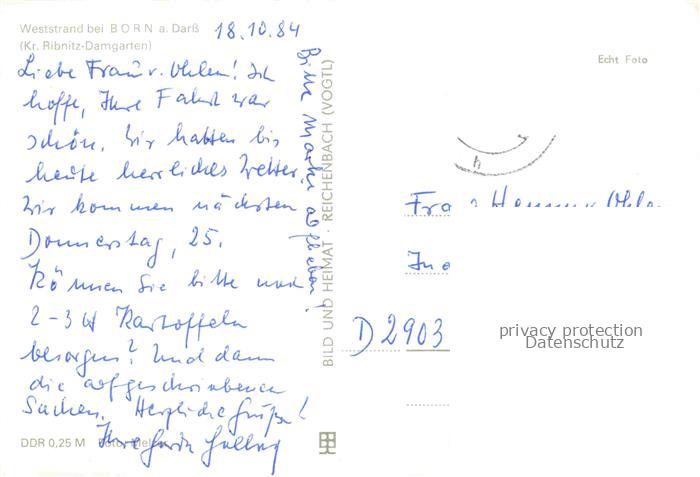 Weststrand bei BORN a. Darß
(Kr. Ribnitz-Damgarten)
18.10.84
Liebe Frau v. Uhlen! Ich
hoffe, Ihre Fahrt war
schön. Wir hatten bis
heute herrliches Wetter.
Wir kommen nächsten
Donnerstag, 25.
Können Sie bitte noch
2-3 Kartoffeln
besorgen? Und dann
die aufgeschriebenen
Sachen. Herzliche Grüße!
Ihre
Bitte Marke ablösen!
DDR 0,25 M Foto:
BILD UND HEIMAT · REICHENBACH (VOGTL)
Echt Foto
Fra
D 2903
privacy protection
Datenschutz